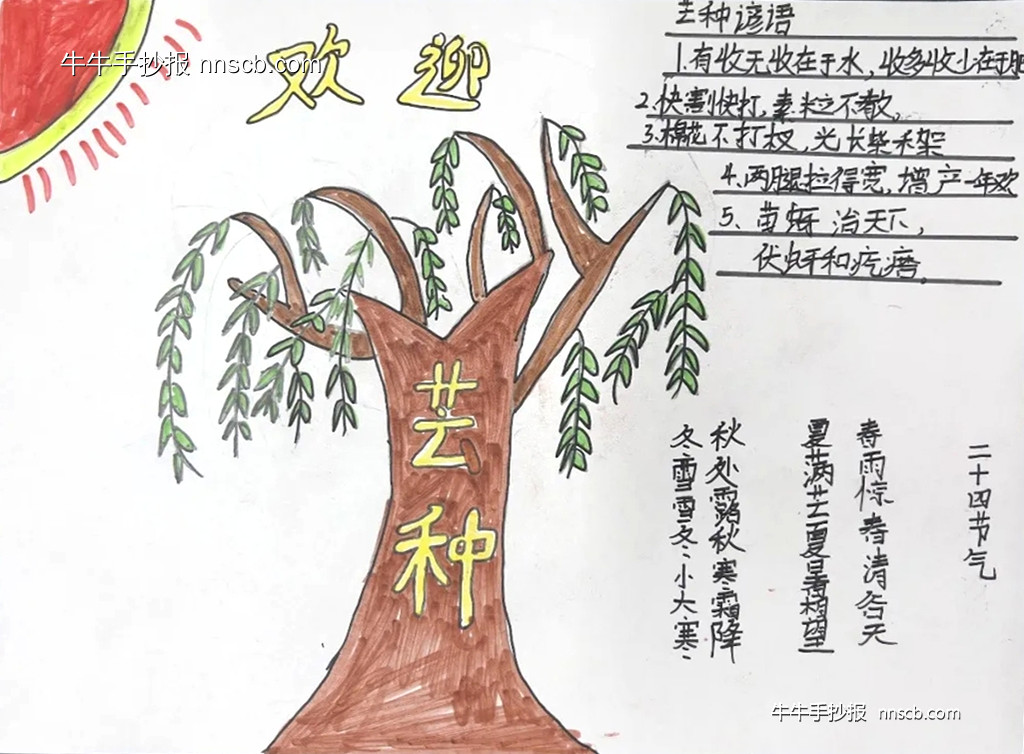 牛牛手抄报 nnscb.com
欢迎
芒种
芒种谚语
1.有收无收在于水,收多收少在于肥
2.快割快打,素粒不散,
3.棉花不打杈,光长柴禾架
4.两腿拉得宽,增产一年欢
5、苗蚜治天下,
伏蚜和疙瘩
二十四节气
春雨惊春清谷天
夏满芒夏暑相望
秋处露秋寒霜降
冬雪雪冬小大寒
牛牛手抄报 nnscb.com